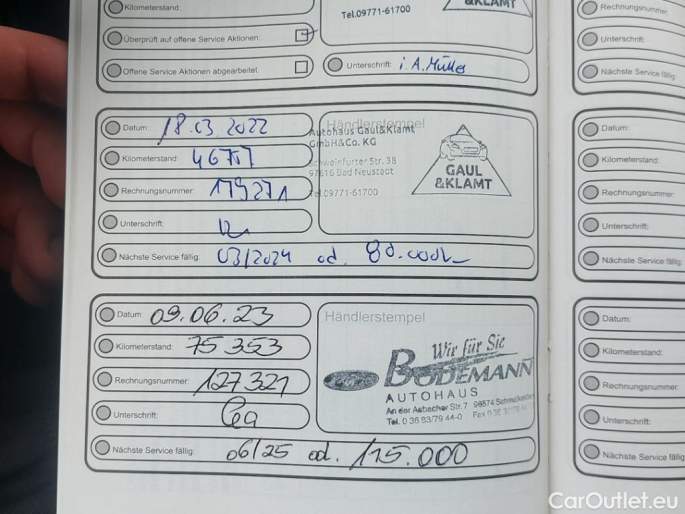 Kilometerstand:
Tel.09771-61700
&KLAMT
Überprüft auf offene Service Aktionen:
Offene Service Aktionen abgearbeitet:
Unterschrift: i. A. Müller
Datum: 18.03 2022
Händlerstempel
Autohaus Gaul&Klamt
GmbH&Co. KG
Schweinfurter Str. 38
97616 Bad Neustadt
Tel.09771-61700
GAUL
&KLAMT
Kilometerstand:
Rechnungsnummer: 179271
Unterschrift:
Nächste Service fällig: 03/2024 od.
Datum: 09.06.23
Händlerstempel
Wir für Sie
BODEMANN
AUTOHAUS
An der Asbacher Str. 7 98574
Tel. 0 36 83/79 44-0
Kilometerstand: 75 353
Rechnungsnummer: 127321
Unterschrift:
Nächste Service fällig: 06/25 od. 115.000
Rechnungsnummer
Unterschrift:
Nächste Service fällig:
Datum:
Kilometerstand:
Rechnungsnummer:
Unterschrift:
Nächste Service fällig:
Datum:
Kilometerstand:
Rechnungsnummer:
Unterschrift:
Nächste Service fällig:
CarOutlet.eu